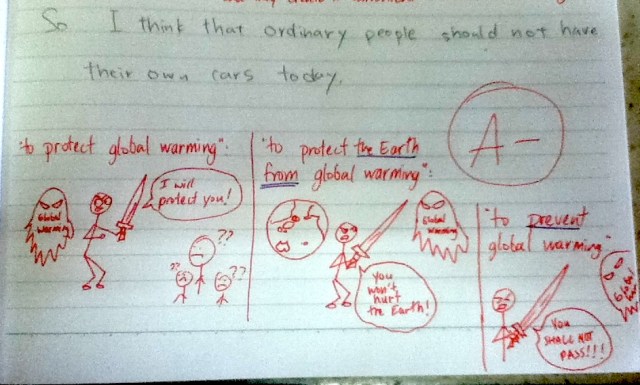 So I think that ordinary people should not have
their own cars today.
A-
"to protect global warming":
Global
Warming
I will
protect you!
??
??
??
"to protect the Earth
from global warming":
Global
Warming
You
won't
hurt
the Earth!
"to prevent
global warming"
Global
You
SHALL NOT
PASS!!!